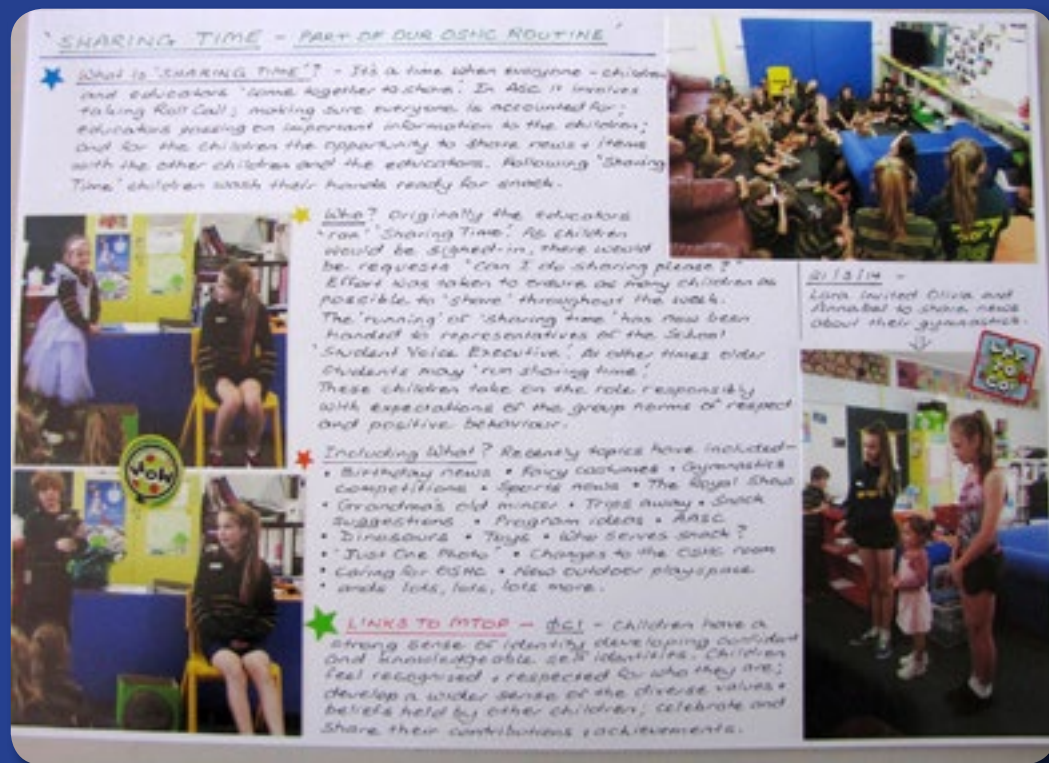 'SHARING TIME - PART OF OUR OSHC ROUTINE'
What is "SHARING TIME"? - It's a time when everyone - children
and educators 'come together to share'. In ASC it involves
taking Roll Call; making sure everyone is accounted for;
educators passing on important information to the children;
and for the children the opportunity to share news + items
with the other children and the educators. Following 'Sharing
Time' children wash their hands ready for snack.
Who? Originally the educators
'ran' 'Sharing Time'. As children
would be signed-in, there would
be requests "Can I do sharing please?"
Effort was taken to ensure as many children as
possible to 'share' throughout the week.
The 'running' of 'sharing time' has now been
handed to representatives of the School
'Student Voice Executive'. At other times older
students may 'run sharing time'.
These children take on the role responsibly
with expectations of the group norms of respect
and positive behaviour.
21/3/14 -
Lara invited Olivia and
Annabel to share news
about their gymnastics.
WOW
Including What? Recently topics have included-
• Birthday news • Fairy costumes • Gymnastics
competitions • Sports news • The Royal Show
• Grandma's old mincer • Trips away • Snack
suggestions • Program ideas • AASC
• Dinosaurs • Toys • Who serves snack?
• "Just One Photo" • Changes to the OSHC room
• Caring for OSHC • New outdoor playspace
• and lots, lots, lots more.
LINKS TO MTOP - - Children have a
strong sense of identity developing confident
and knowledgeable self identities. Children
feel recognised + respected for who they are;
develop a wider sense of the diverse values +
beliefs held by other children; celebrate and
share their contributions + achievements.